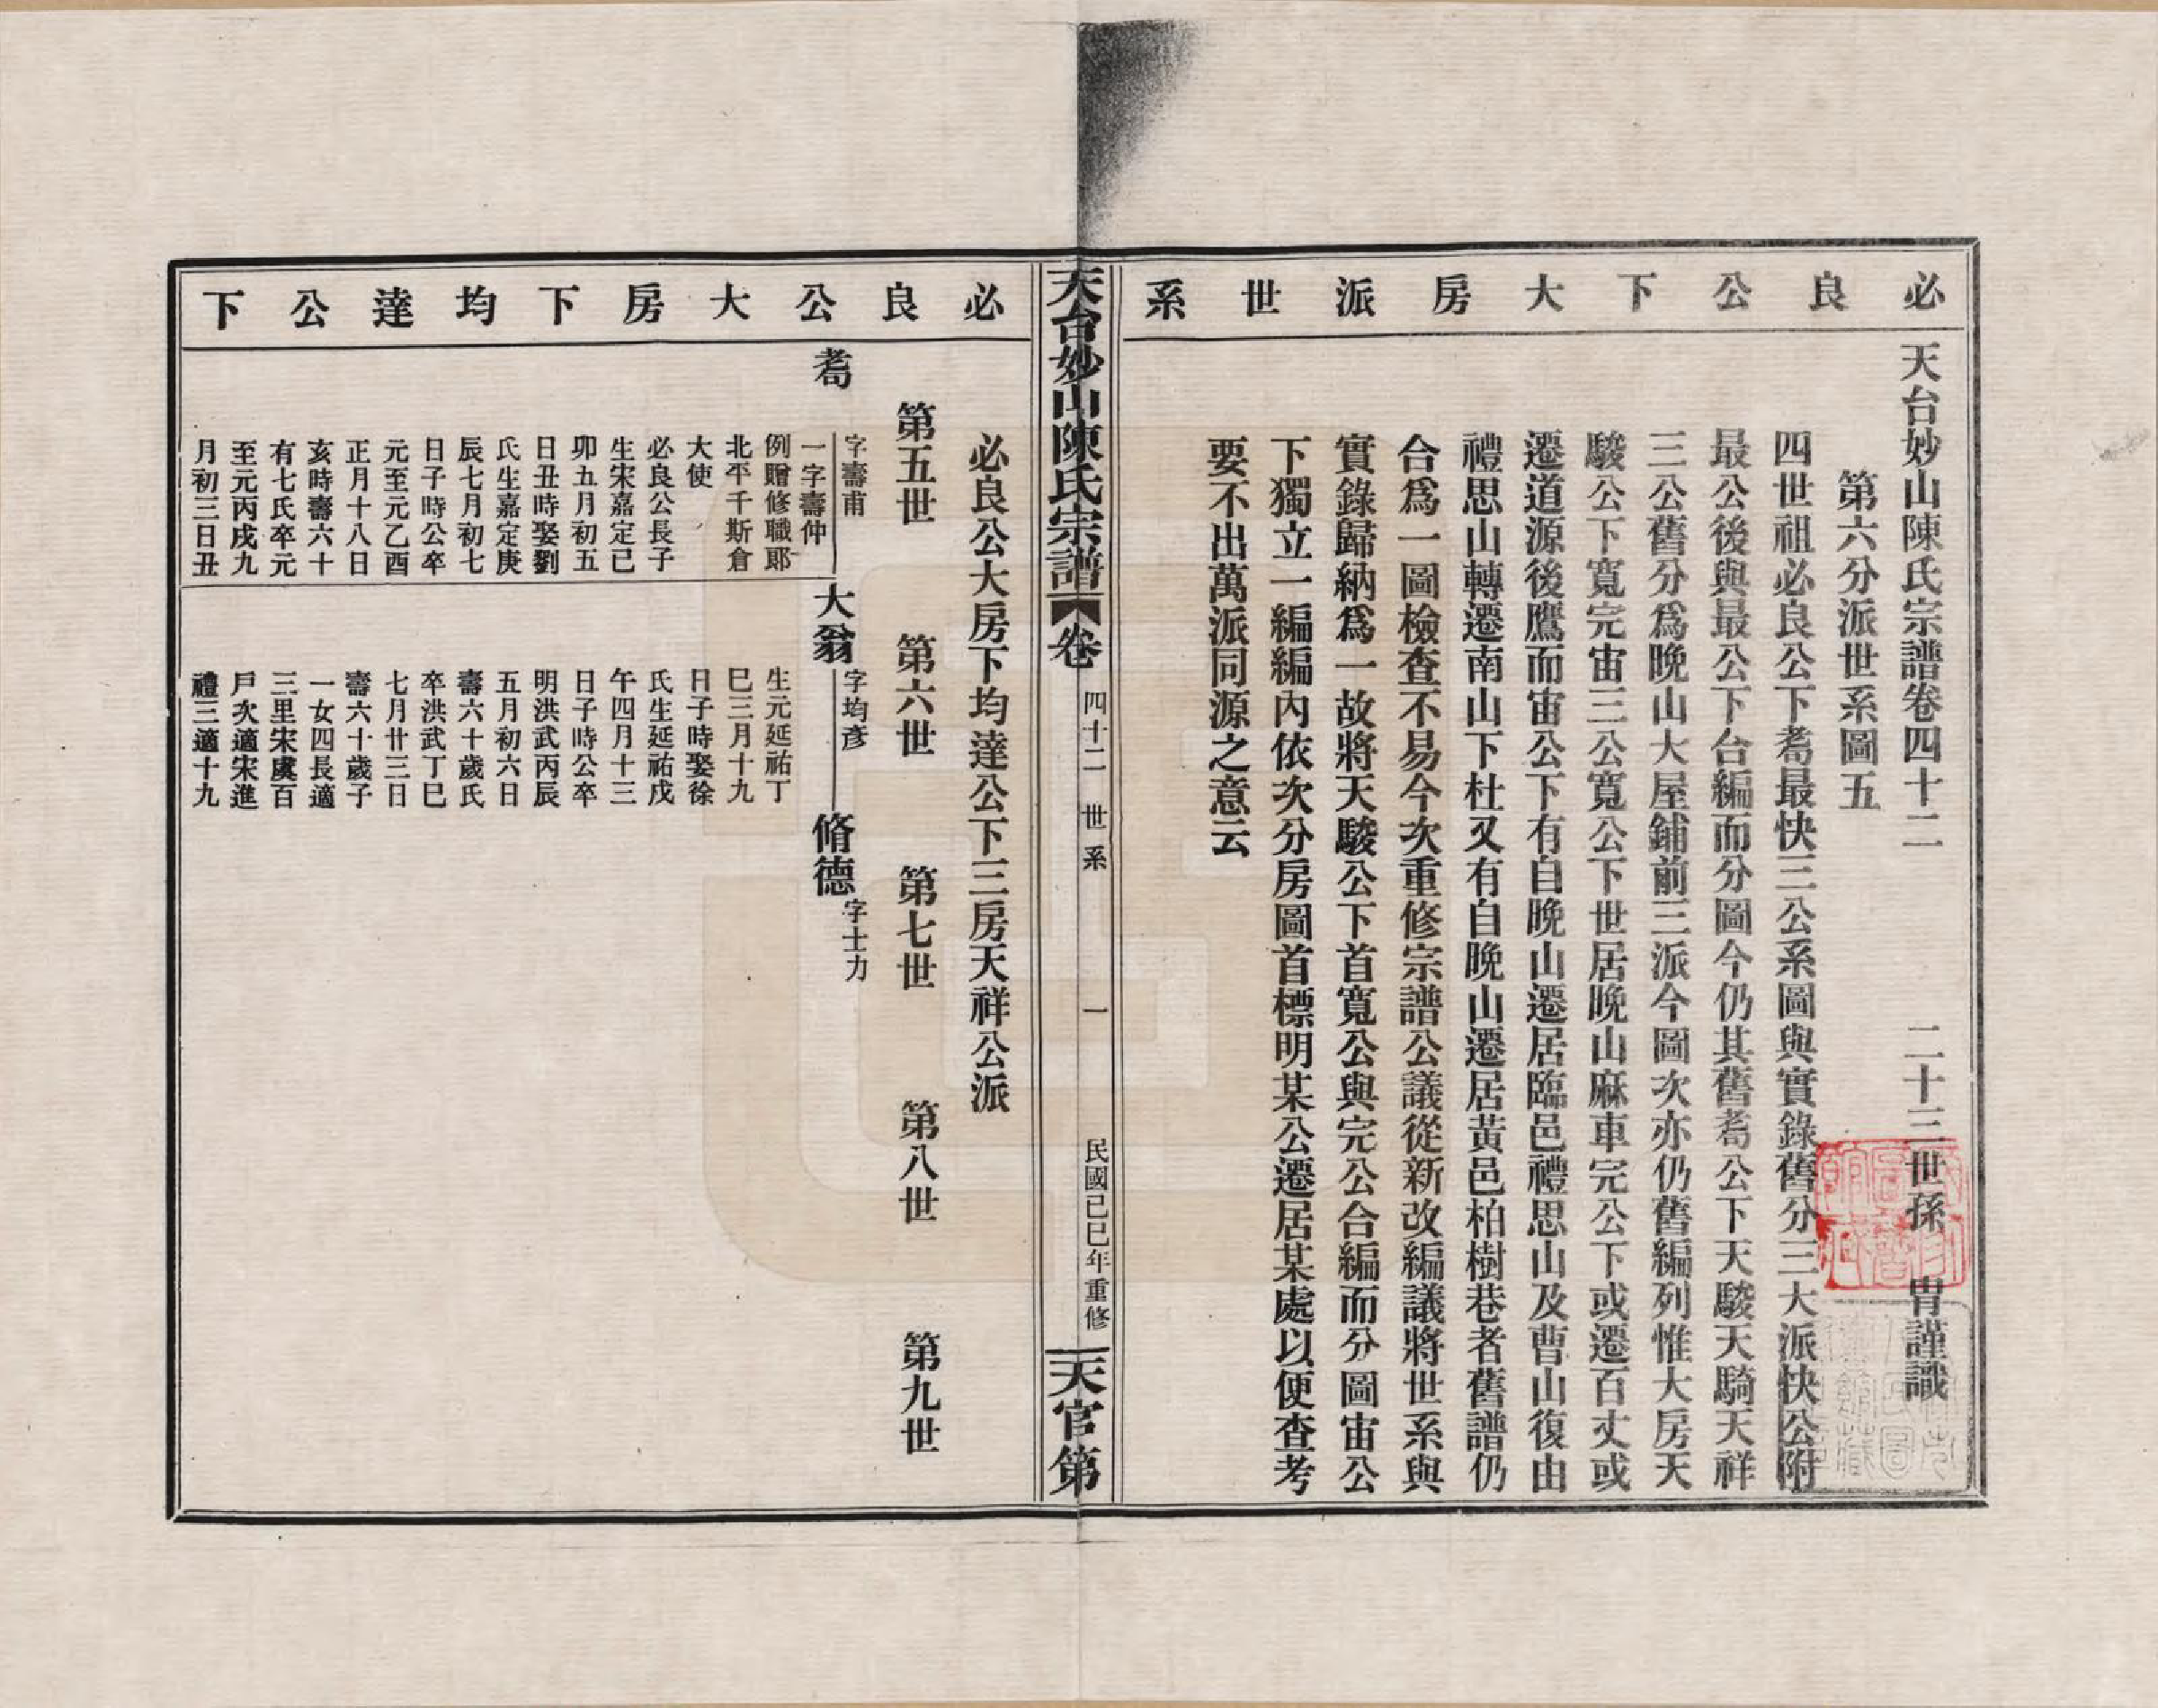 必良公下大房派世系
天台妙山陳氏宗譜卷四十二 二十三世孫 冑謹識
第六分派世系圖五
四世祖必良公下耈最快三公系圖與實錄舊分三大派快公附
最公後與最公下台編而分圖今仍其舊耈公下天駿天騎天祥
三公舊分爲晚山大屋鋪前三派今圖次亦仍舊編列惟大房天
駿公下寬完宙三公寬公下世居晚山麻車完公下或遷百丈或
遷道源後鷹而宙公下有自晚山遷居臨邑禮思山及曹山復由
禮思山轉遷南山下杜又有自晚山遷居黃邑柏樹巷者舊譜仍
合爲一圖檢查不易今次重修宗譜公議從新改編議將世系與
實錄歸納爲一故將天駿公下首寬公與完公合編而分圖宙公
下獨立一編編內依次分房圖首標明某公遷居某處以便查考
要不出萬派同源之意云
天台妙山陳氏宗譜 卷 四十二 世系 一 民國己巳年重修 天官第
必良公大房下均達公下
必良公大房下均達公下三房天祥公派
第五世 第六世 第七世 第八世 第九世
耈
字壽甫
一字壽仲
例贈修職郎
北平千斯倉
大使
必良公長子
生宋嘉定己
卯五月初五
日丑時娶劉
氏生嘉定庚
辰七月初七
日子時公卒
元至元乙酉
正月十八日
亥時壽六十
有七氏卒元
至元丙戌九
月初三日丑
大翁
字均彥
生元延祐丁
巳三月十九
日子時娶徐
氏生延祐戊
午四月十三
日子時公卒
明洪武丙辰
五月初六日
壽六十歲氏
卒洪武丁巳
七月廿三日
壽六十歲子
一女四長適
三里宋虞百
戶次適宋進
禮三適十九
脩德
字士力